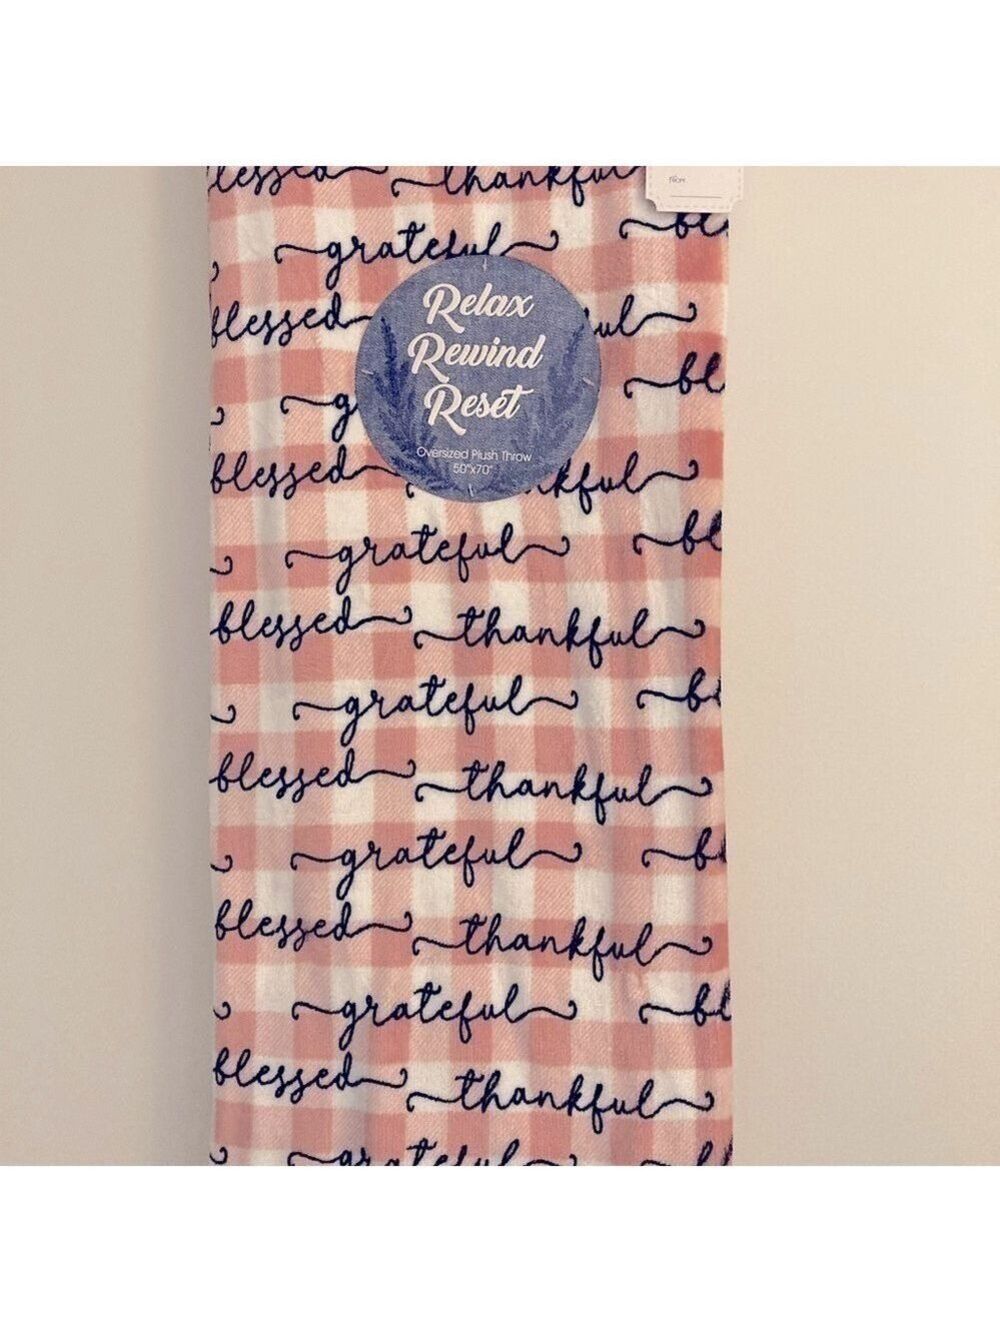 blessed thankful
From:
grateful bl
Relax
blessed ful
Rewind
bl
Reset
g
Oversized Plush Throw
50"x70"
blessed kful
grateful bl
blessed thankful
grateful bl
blessed thankful
grateful bl
blessed thankful
grateful bl
blessed thankful
grateful